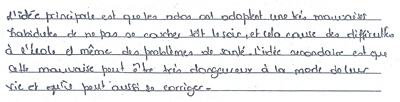 L'idée principale est que les ados ont adoptent une très mauvaise
habitudes de ne pas se coucher tôt le soir, et cela cause des difficultés
à l'école et même des problèmes de santé. l'idée secondaire est que
cette mauvaise peut être très dangereux à la mode de leur
vie et qu'ils peut aussi se corriger.